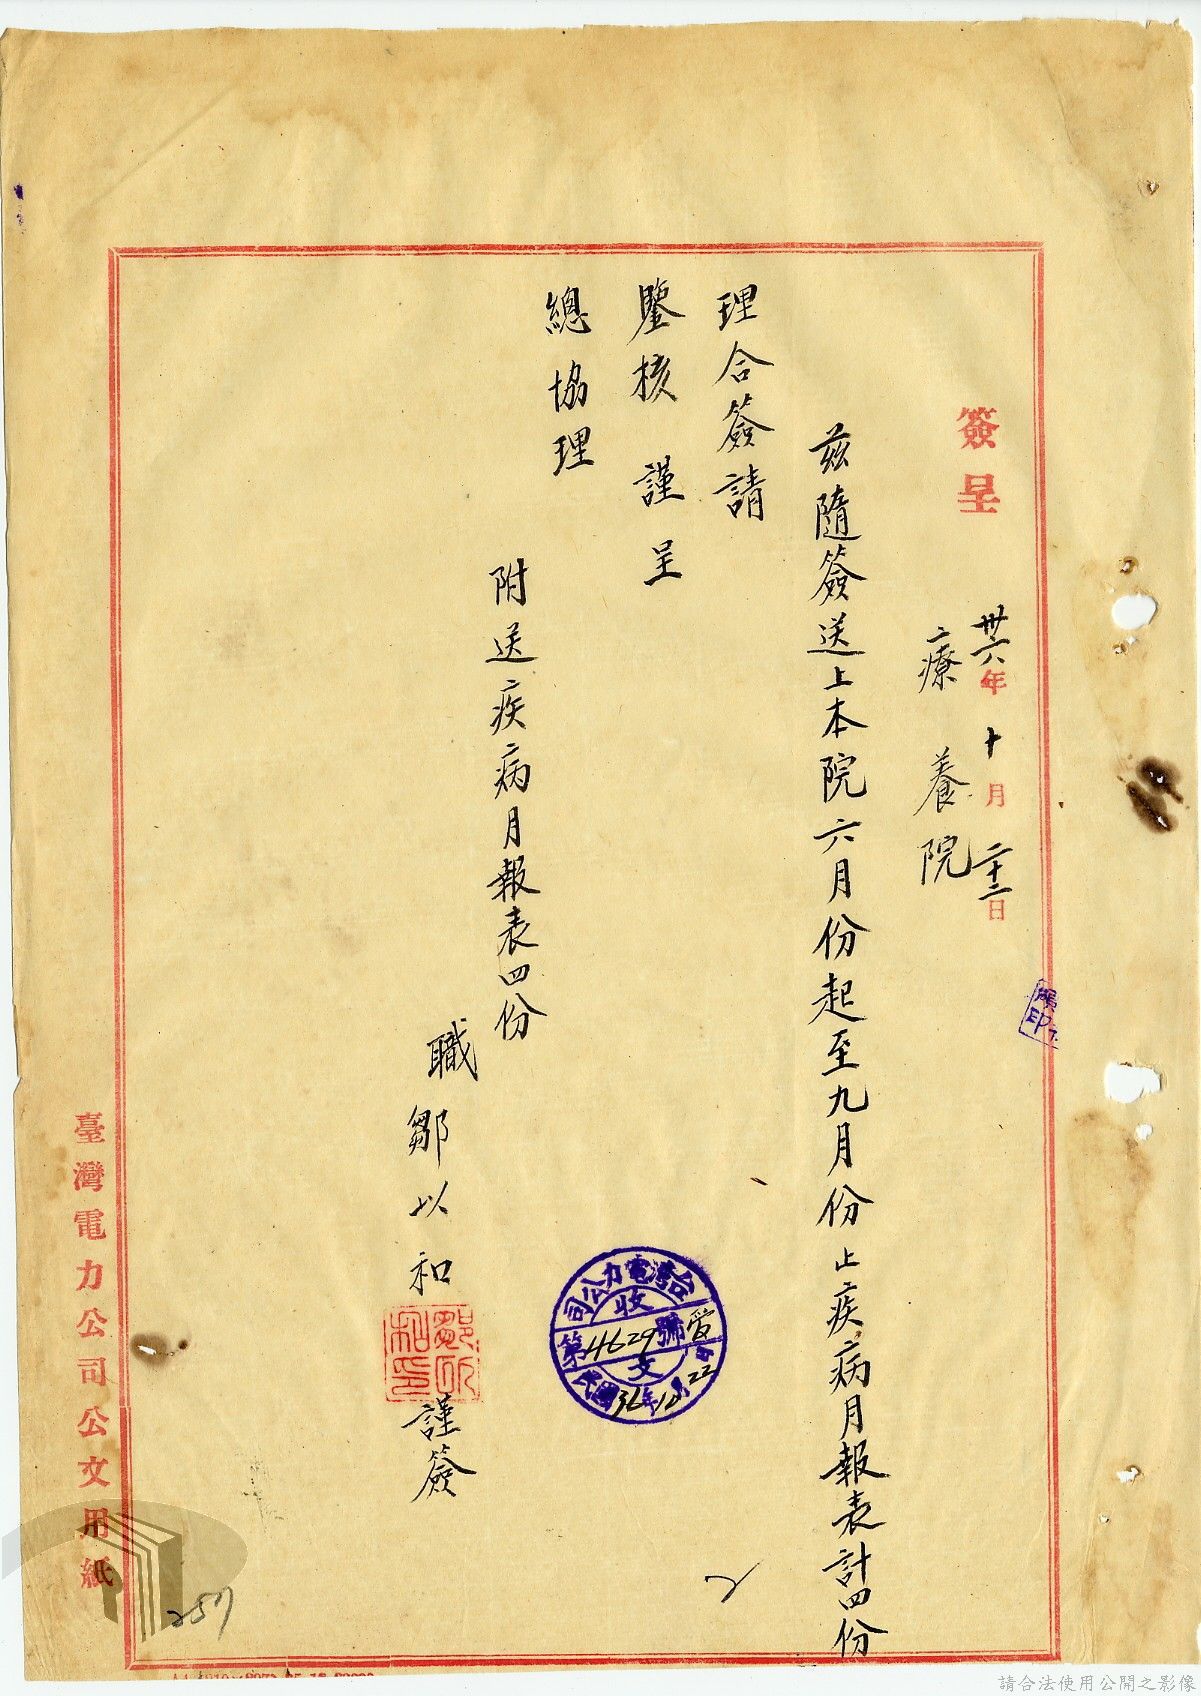 簽呈
卅六年十月二十二日
療養院
茲隨簽送上本院六月份起至九月份止疾病月報表計四份
理合簽請
鑒核 謹呈
總協理
附送疾病月報表四份
職鄒以和 謹簽
台灣電力公司
收文
第4629號
民國36年10月22日
臺灣電力公司公文用紙
257
請合法使用公開之影像